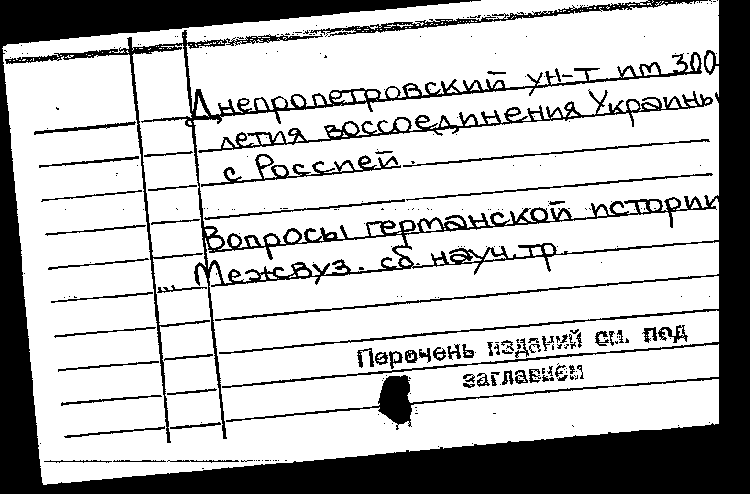 Днепропетровский ун-т им 300-
летия воссоединения Украины
с Россией.
Вопросы германской истории
... Межвуз. сб. науч. тр.
Перечень изданий см. под
заглавием